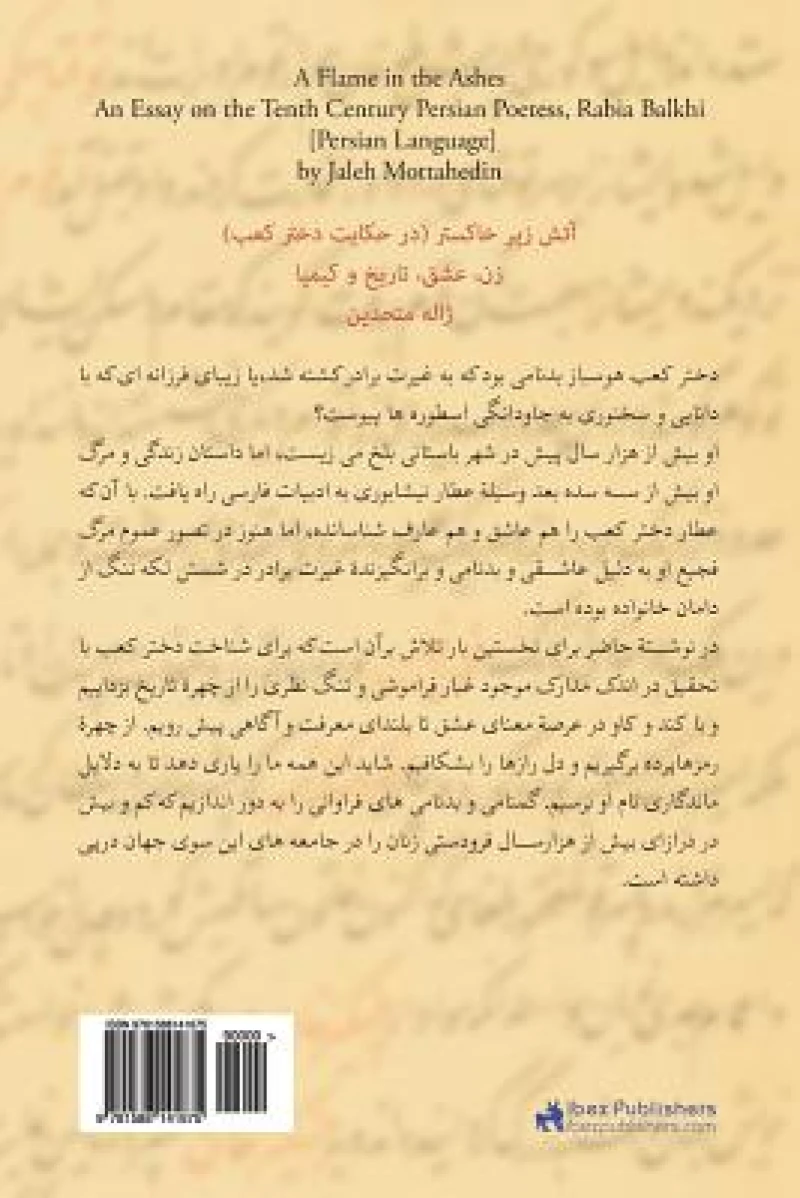 A Flame in the Ashes
An Essay on the Tenth Century Persian Poetess, Rabia Balkhi
[Persian Language]
by Jaleh Mottahedin
آتش زیر خاکستر (در حکایت دختر کعب)
زن، عشق، تاریخ و کیمیا
ژاله متحدین
دختر کعب هوسباز بدنامی بود که به غیرت برادر کشته شد، یا زیبای فرزانه ای که با
دانایی و سخنوری به جاودانگی اسطوره ها پیوست؟
او بیش از هزار سال پیش در شهر باستانی بلخ می زیست، اما داستان زندگی و مرگ
او بیش از سه سده بعد وسیلهٔ عطار نیشابوری به ادبیات فارسی راه یافت. با آن‌که
عطار دختر کعب را هم عاشق و هم عارف شناسانده، اما هنوز در تصور عموم مرگ
فجیع او به دلیل عاشقی و بدنامی و برانگیزندهٔ غیرت برادر در شستن لکه ننگ از
دامان خانواده بوده است.
در نوشتهٔ حاضر برای نخستین بار تلاش برآن است که برای شناخت دختر کعب با
تحقیق در اندک مدارک موجود غبار فراموشی و تنگ نظری را از چهرهٔ تاریخ بزداییم
و با کند و کاو در عرصهٔ معنای عشق تا بلندای معرفت و آگاهی پیش رویم. از چهرهٔ
رمزها پرده برگیریم و دل رازها را بشکافیم. شاید این همه ما را یاری دهد تا به دلایل
ماندگاری نام او برسیم. گمنامی و بدنامی های فراوانی را به دور اندازیم که کم و بیش
در درازای بیش از هزارسال فرودستی زنان را در جامعه های این سوی جهان درپی
داشته است.
90000 >
Ibex Publishers
ibexpublishers.com